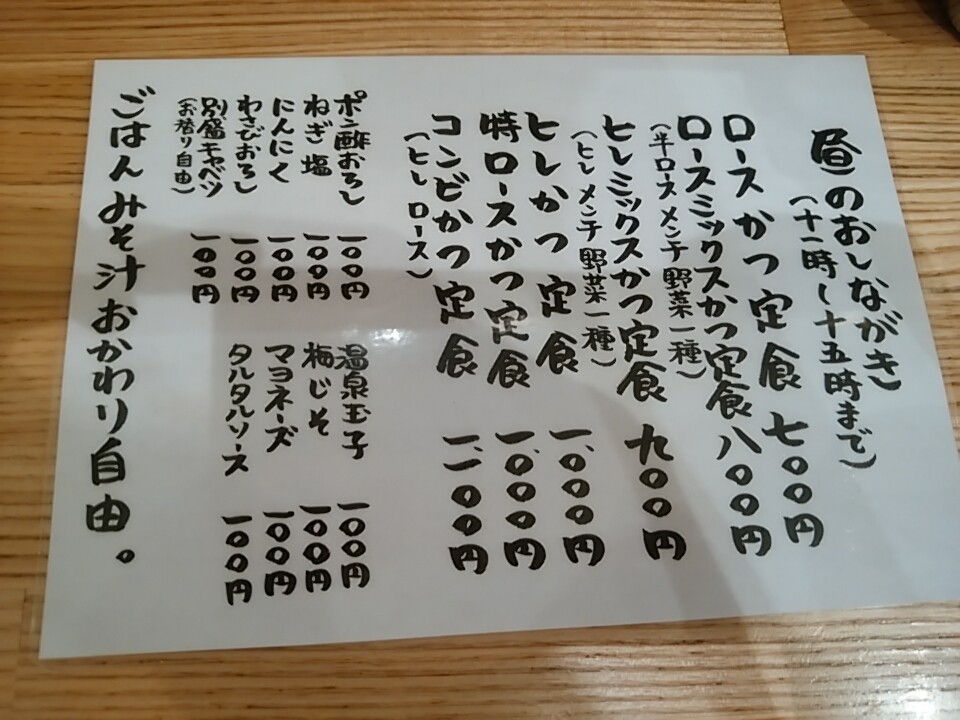 昼のおしながき
(十一時〜十五時まで)
ロースかつ定食 七〇〇円
ロースミックスかつ定食 八〇〇円
(半ロース メンチ 野菜一種)
ヒレミックスかつ定食 九〇〇円
(ヒレ メンチ 野菜一種)
ヒレかつ定食 一、〇〇〇円
特ロースかつ定食 一、〇〇〇円
コンビかつ定食 一、一〇〇円
(ヒレ ロース)
ポン酢おろし 一〇〇円
ねぎ塩 一〇〇円
にんにく 一〇〇円
わさびおろし 一〇〇円
別盛キャベツ 一〇〇円
(お替り自由)
温泉玉子 一〇〇円
梅じそ 一〇〇円
マヨネーズ 一〇〇円
タルタルソース 一〇〇円
ごはんみそ汁おかわり自由。